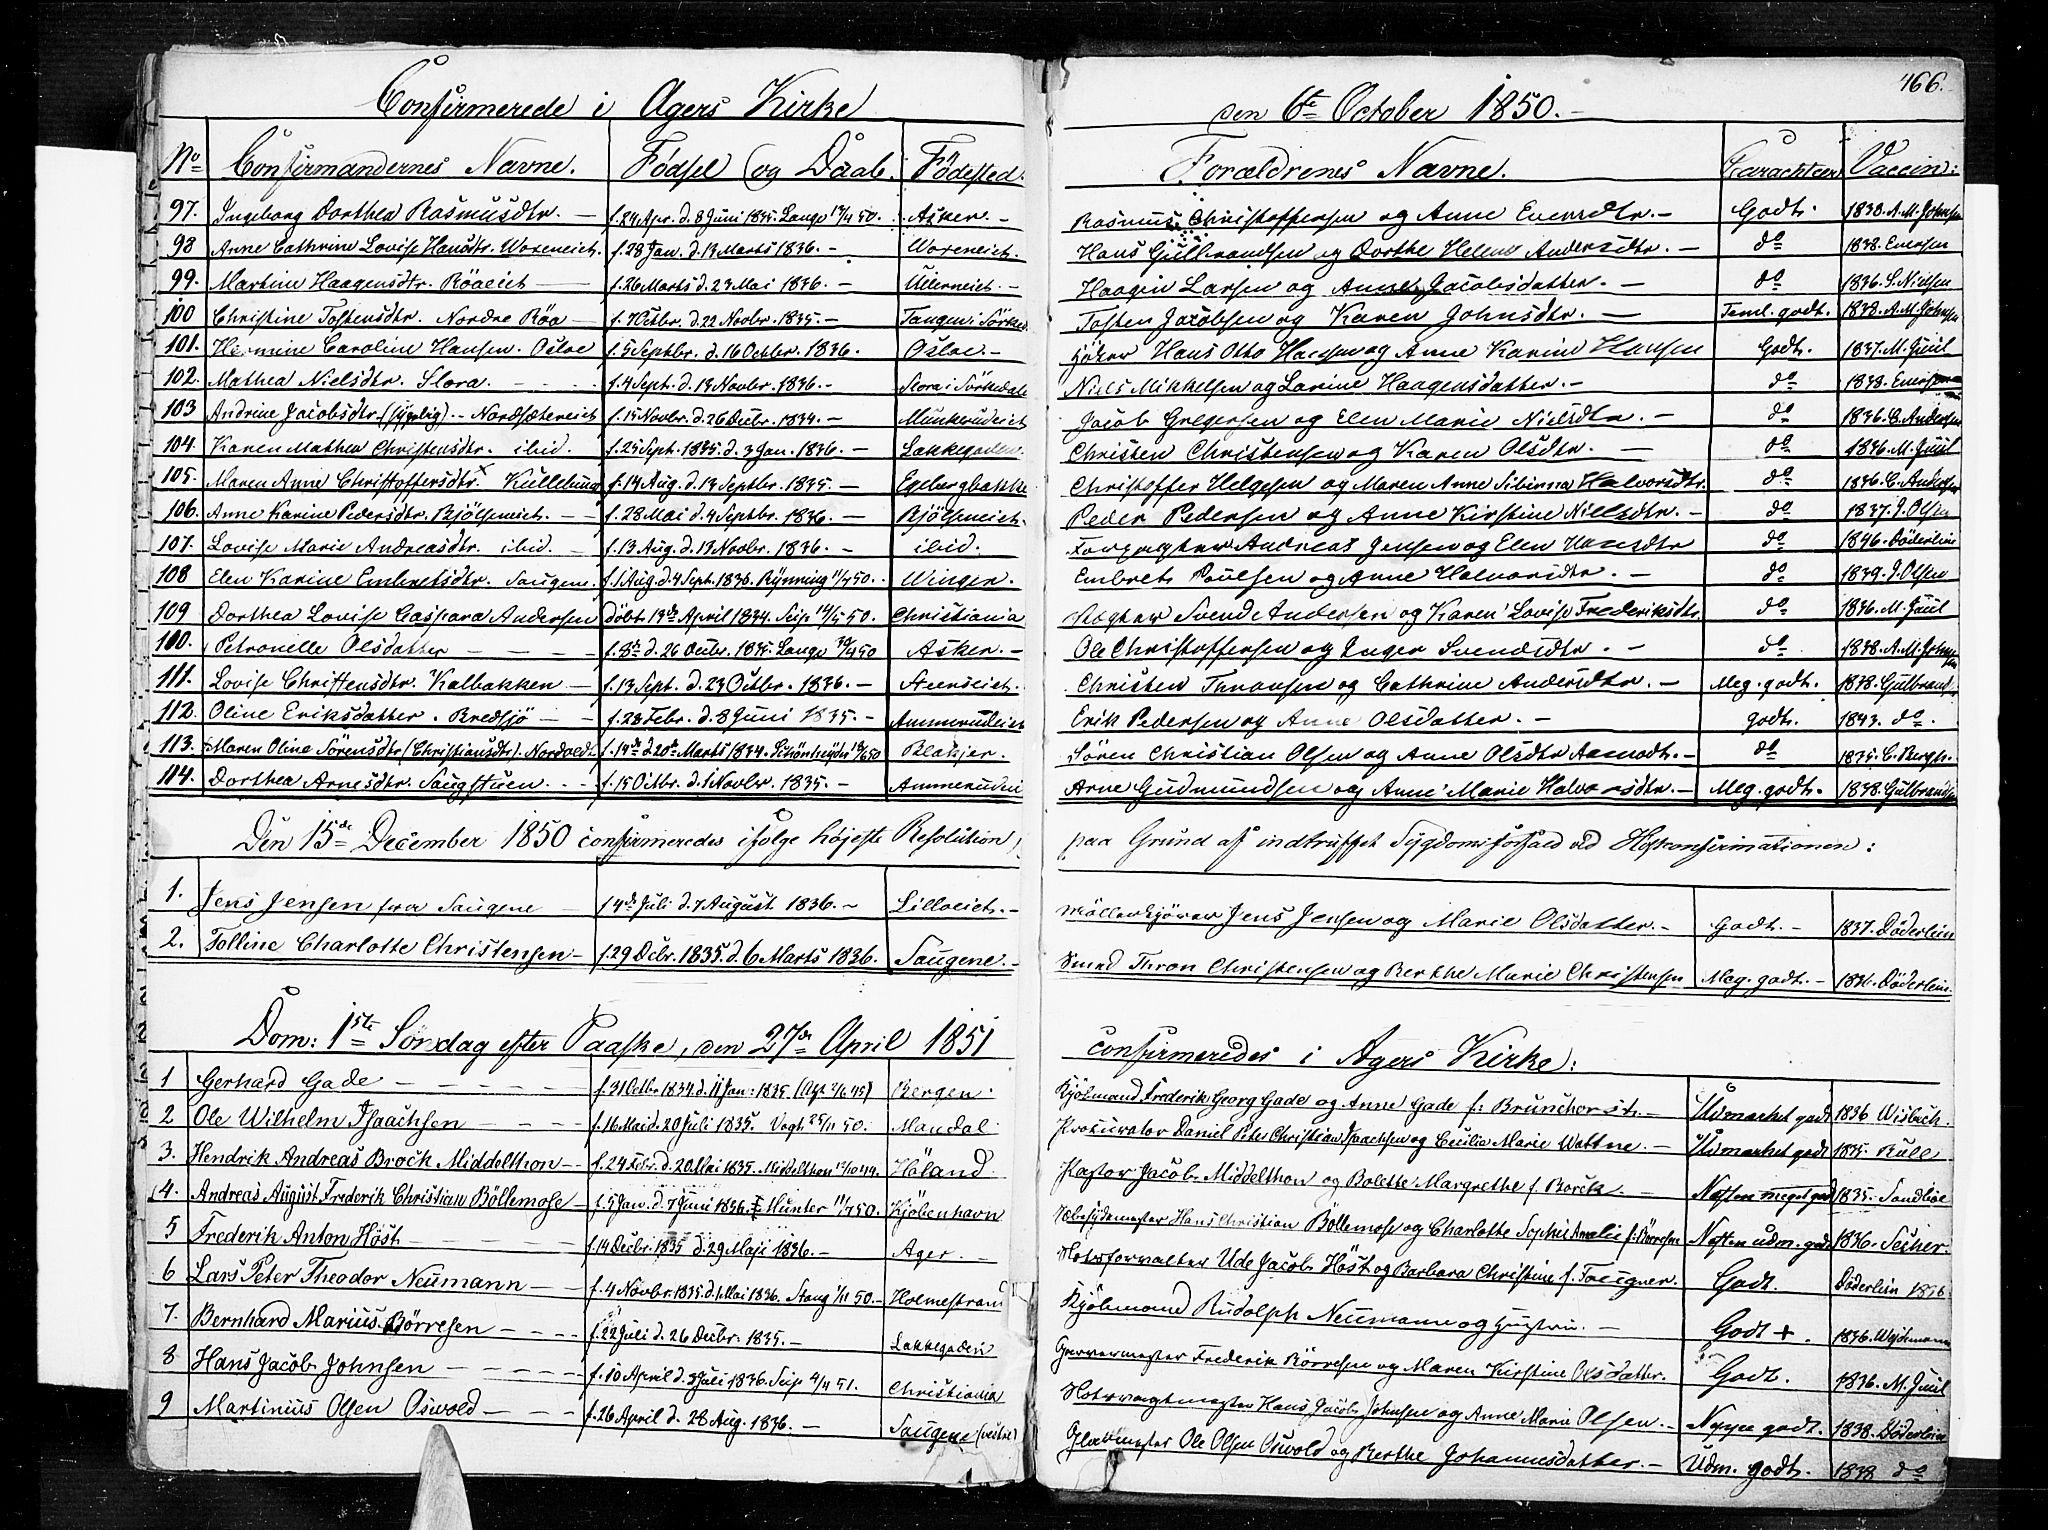 466.
Confirmerede i Agers Kirke den 6te October 1850.
No Confirmandernes Navne. Födsel og Daab. Födested. Forældrenes Navne. Carachteer Vaccin:
97. Ingeborg Dorthea Rasmusdtr. f. 24 Apr. d. 8 Juni 1835. Lange 17/4 50. Asker. Rasmus Christoffersen og Anne Evensdtr. Godt. 1838. A. M. Johnsen
98 Anne Cathrine Lovise Hansdtr. Woxeneiet. f. 28 Jan. d. 13 Marts 1836. Woxeneiet. Hans Gulbrandsen og Dorthe Helene Andersdtr. do 1838. Evensen
99. Martine Haagensdtr. Röaeiet f. 26 Marts d. 23 Mai 1836. Ullerneiet. Haagen Larsen og Anne Jacobsdatter. do 1836. S. Nielsen
100 Christine Tostensdtr. Nordre Röa f. 7 Octbr. d. 22 Novbr. 1835. Tangen i Sörked. Tosten Jacobsen og Karen Johnsdtr. Teml. godt. 1838. A. M. Johnsen
101. Hermine Caroline Hansen. Osloe f. 5 Septbr. d. 16 Octbr. 1836. Osloe. Höker Hans Otto Hansen og Anne Karine Hansen Godt. 1837. M. Juul
102. Mathea Nielsdtr. Slora. f. 4 Sept. d. 13 Novbr. 1836. Slora i Sörkedale Niels Mikkelsen og Larine Haagensdatter. do 1838. Evensen
103 Andrine Jacobsdtr. (sygelig). Nordsætereiet f. 15 Novbr. d. 26 Decbr. 1834. Munkerudeiet Jacob Gregersen og Elen Marie Nielsdtr. do 1836. C. Andersen
104. Karen Mathea Christensdtr. ibid. f. 25 Sept. 1835. d. 3 Jan. 1836. Lakkegaden. Christen Christensen og Karen Olsdtr. do 1836. M. Juul
105. Maren Anne Christoffersdtr. Kullebung f. 14 Aug. d. 13 Septbr. 1835. Egebergbakke Christoffer Helgesen og Maren Anne Sibinna Halvorsdtr. do 1836. C. Andersen
106. Anne Karine Pedersdtr. Bjölseneiet. f. 28 Mai d. 4 Septbr. 1836. Bjölseneiet. Peder Pedersen og Anne Kirstine Nielsdtr. do 1837. J. Olsen
107. Lovise Marie Andreasdtr. ibid. f. 13 Aug. d. 13 Novbr. 1836. ibid. Forpagter Andreas Jensen og Elen Hansdtr do 1846. Döderlein
108 Elen Karine Embretsdtr. Saugene. f. 1 Aug. d. 4 Sept. 1836. Rynning 11/4 50. Winger. Embret Poulsen og Anne Halvorsdtr. do 1839. J. Olsen
109 Dorthea Lovise Caspara Andersen döbt 13de April 1834. Seip 14/5 50. Christiania Svend Andersen og Karen Lovise Frederiksdtr. do 1836. M. Juul
100. Petronelle Olsdatter f. 8de d. 26 Octbr. 1835. Lange 30/4 50 Asker. Ole Christoffersen og Inger Svendsdtr. do 1838. A. M. Johnsen
111. Lovise Christensdtr. Kalbakken f. 13 Sept. d. 23 Octbr. 1836. Steenseiet. Christen Thronsen og Cathrine Andersdtr. Meg. godt. 1838. Gulbrands.
112. Oline Eriksdatter. Bredsjö f. 28 Febr. d. 8 Juni 1835. Ammerudeiet Erik Pedersen og Anne Olsdatter. godt. 1843. do.
113. Maren Oline Sörensdtr. (Christiansdtr). f. 14de d. 20de Marts 1834. Schönheyder Blakjer. Sören Christian Olsen og Anne Olsdtr Aamodt. do 1835. C. Bergh.
114. Dorthea Arnesdtr. Saugstuen. f. 15 Octbr. d. 1 Novbr. 1835. Ammerudei Arne Gudmundsen og Anne Marie Halvorsdtr. Meg. godt. 1838. Gulbrandsen
Den 15de December 1850 confirmeredes ifölge höjeste Resolution, paa Grund af indtruffet Sygdomsforfald ved Höstkonfirmationen:
1. Jens Jensen fra Saugene 14de Juli d. 7 August 1836. Lilloeiet. Möllerkjörer Jens Jensen og Marie Olsdatter. Godt. 1837. Döderlein
2. Tolline Charlotte Christensen f. 29 Dcbr. 1835. d. 6 Marts 1836. Saugene. Smed Thron Christensen og Berthe Marie Christensen Meg. godt. 1836. Döderlein.
Dom: 1ste Söndag efter Paaske, den 27de April 1851 confirmeredes i Agers Kirke:
1 Gerhard Gade f. 31 Octbr 1834. d. 11 Jan: 1835 Bergen. Kjöbmand Frederik Georg Gade og Anne Gade f: Brunchorst. Udmærket godt 1836 Wisbech.
2 Ole Wilhelm Isaachsen f. 16 Mai d. 20 Juli 1835. Vogt 25/11 50. Mandal Prokurator Daniel Peter Christian Isaachsen og Cecilia Marie Wattne. Udmærket godt 1835. Rull
3. Hendrik Andreas Brock Middelthon f. 24 Febr. d. 20 Mai 1835. Middelthon 13/10 49. Höland. Pastor Jacob Middelthon og Bolette Margrethe f. Borck. Næsten meget godt 1835. Sandboe
4. Andreas August Frederik Christian Böllemose f. 5 Jan. d. 7 Juni 1836. Münter 11/7 50. Kjöbenhavn Hans Christian Böllemose og Charlotte Sophie Amalie f. Börresen Næsten udm. godt 1836. Secher.
5 Frederik Anton Höst f. 14 Decbr. 1835 d. 29 Maji 1836. Ager. Ude Jacob Höst og Barbara Christine f. Fougner. Godt. Döderlein 1836
6 Lars Peter Theodor Neumann f. 4 Novbr. 1835. d. 1 Mai 1836. Stang 1/11 50. Holmestrand Kjöbmand Rudolph Neumann og Hustru. Godt +. 1836. Weidemann
7. Bernhard Marius Börresen f. 22 Juli d. 26 Decbr: 1835. Lakkegaden Garvermester Frederik Börresen og Maren Kirstine Olsdatter. Godt. 1836. M. Juul
8 Hans Jacob Johnsen f. 10 April d. 3 Juli 1836. Seip 4/4 51. Christiania Hans Jacob Johnsen og Anne Marie Olsen. Neppe godt. 1838. Döderlein
9 Martinius Olsen Oswold f. 26 April d. 28 Aug. 1836. Saugene (vestre) Ole Olsen Oswold og Berthe Johannesdatter. Udm. godt. 1838 do